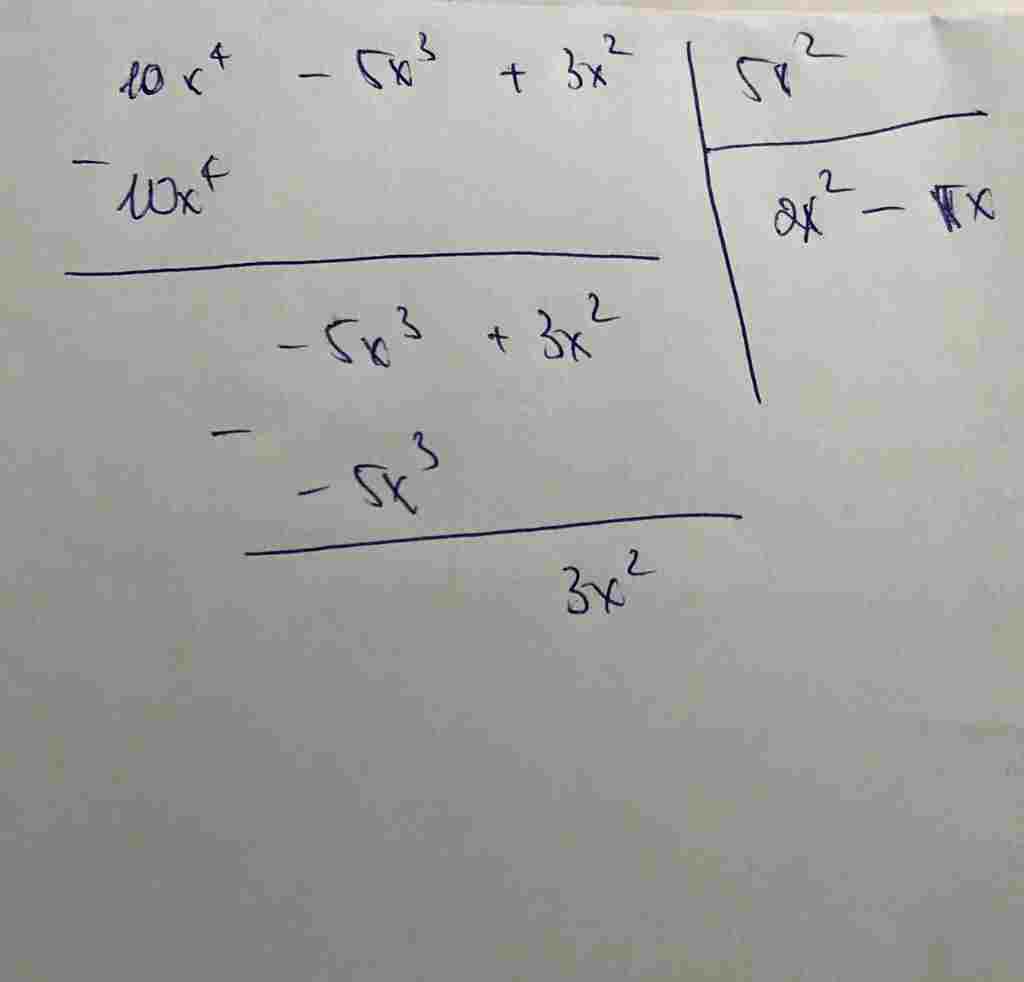 10x⁴ - 5x³ + 3x² | 5x²
- 10x⁴ | 2x² - x
- 5x³ + 3x²
-
- 5x³
3x²